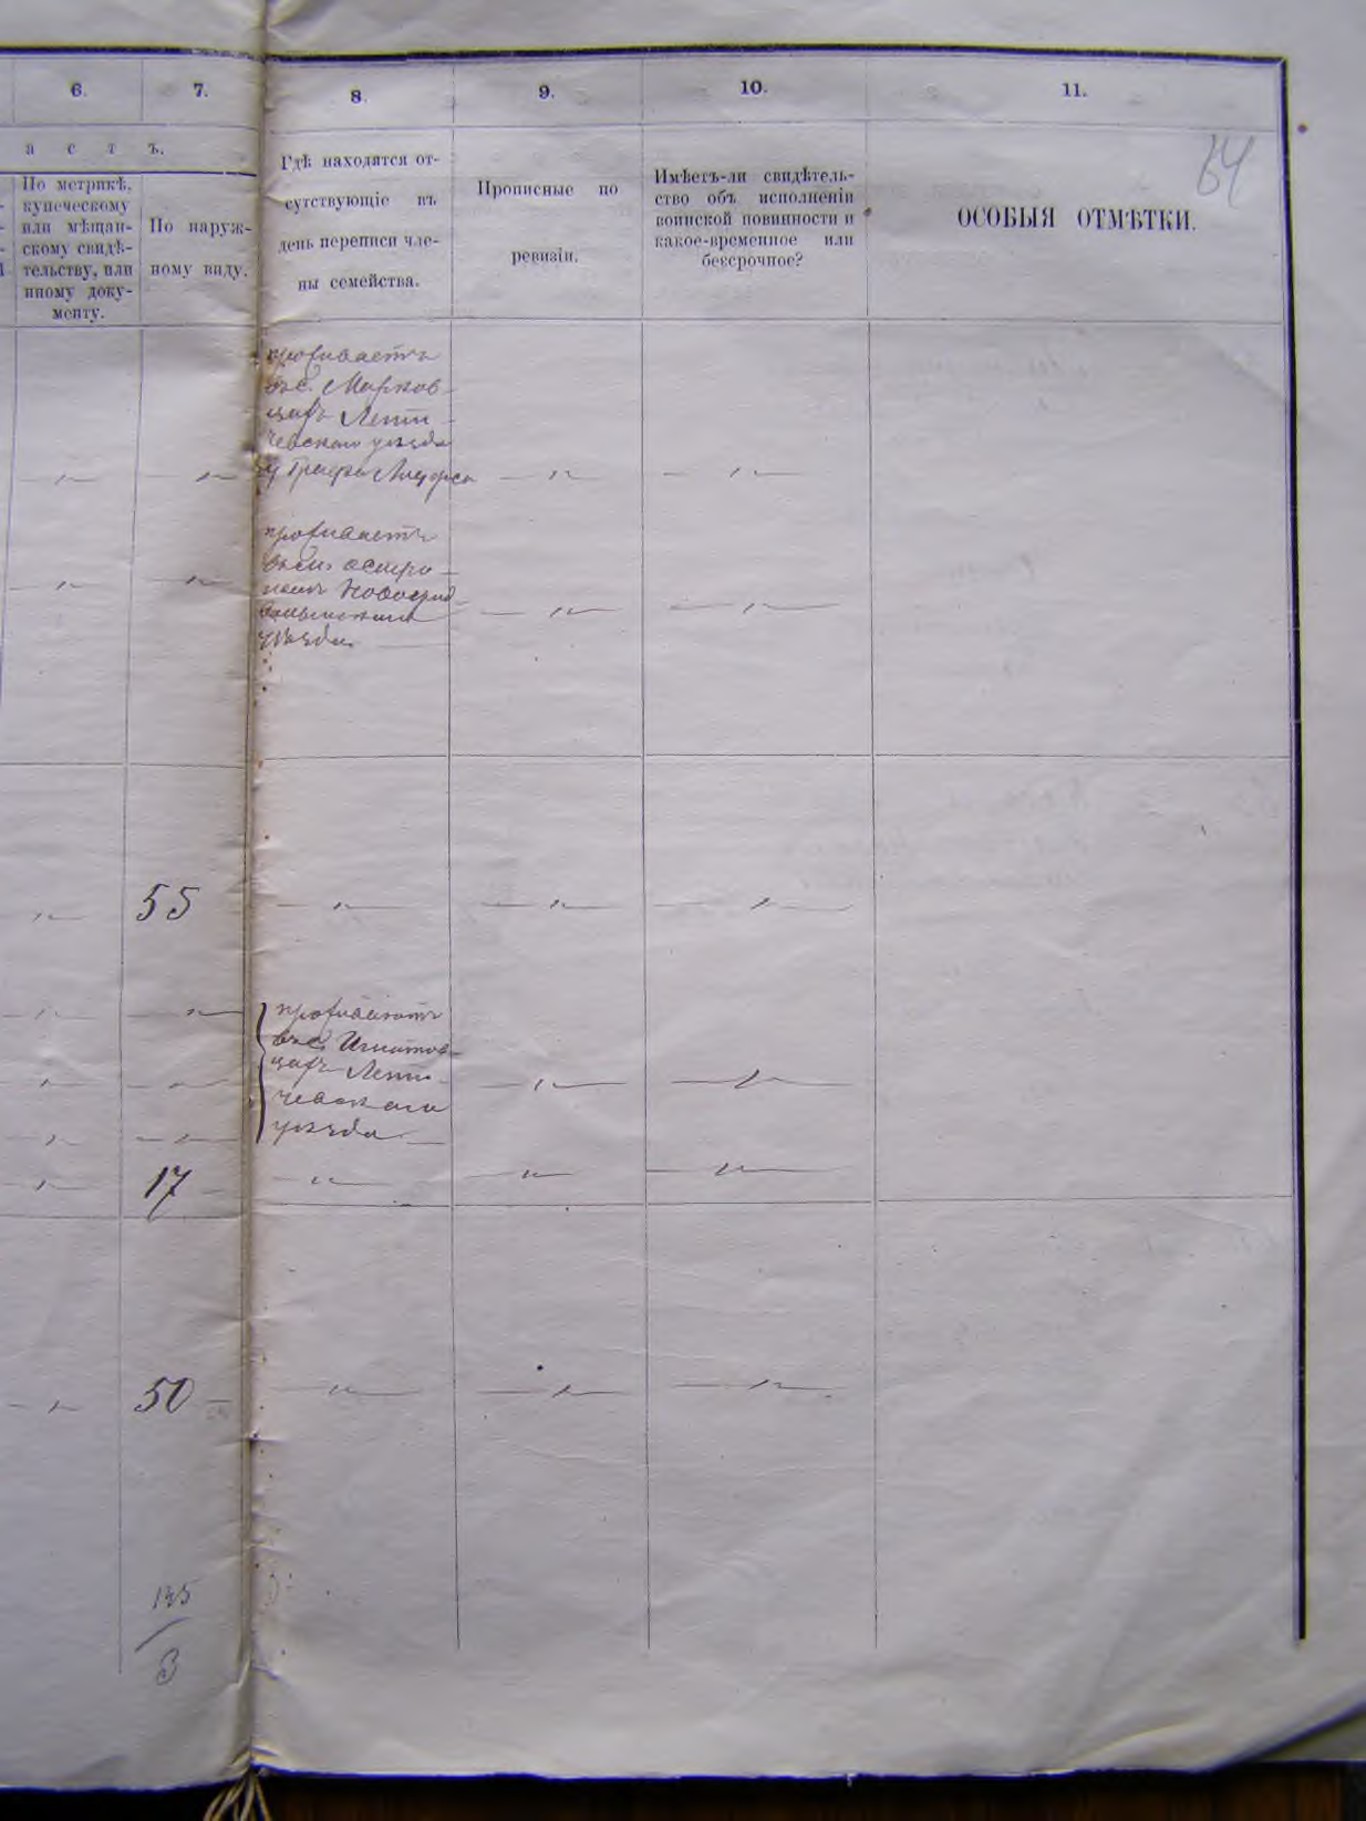 6. 7. 8. 9. 10. 11.
а с т ъ.
По метрикѣ,
купеческому
или мѣщан-
скому свидѣ-
тельству, или
иному доку-
менту.
По наруж-
ному виду.
Гдѣ находятся от-
сутствующіе въ
день переписи чле-
ны семейства.
Прописные по
ревизіи.
Имѣетъ-ли свидѣтель-
ство объ исполненіи
воинской повинности и
какое-временное или
безсрочное?
ОСОБЫЯ ОТМѢТКИ.
64
проживаетъ
въ с. Марков
цахъ Лети-
чевскаго уѣзда
у Графа
проживаетъ
остро-
Новоград
волынскаго
уѣзда
55
проживаютъ
въ с. Игнатов-
цахъ Лети-
чевскаго
уѣзда
17
50
3